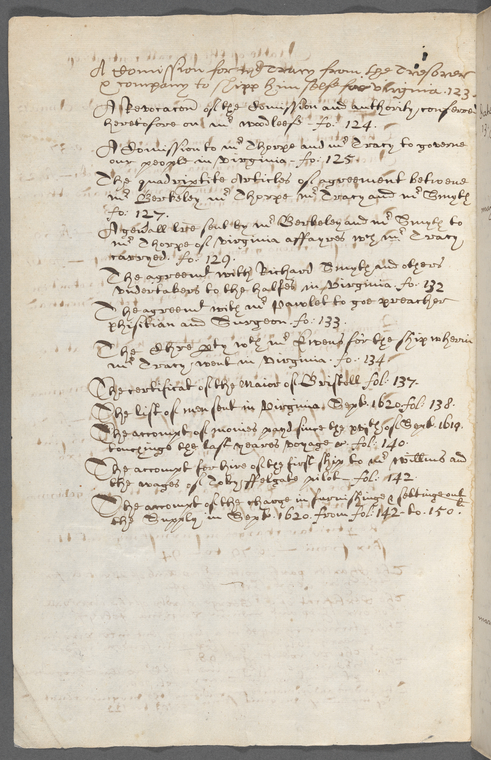 A Comission for mr Tracy from the Tresorer
& company to shipp himselfe for virginia. 123.
A Revocacon of the Comission and authority conferred
heretofore on mr woodleefe. fo. 124.
A Comission to mr Thorpe and mr Tracy to governe
our people in virginia. fo. 125.
The quadripartite Articles of agreement betwene
mr Berkeley mr Thorpe mr Tracy and mr Smyth
fo. 127.
A generall lre sent by mr Berkeley and mr Smyth to
mr Thorpe of virginia affayres wch mr Tracy
carryed. fo. 129.
The agreemt with Richard Smyth and others
undertakers to the halfes in virginia. fo. 132
The agreemt with mr Pawlet to goe preacher
phisitian and Surgeon. fo. 133.
The Chre pty wth mr Ewens for the ship wherin
mr Tracy went in virginia. fo. 134
The certificat of the Maior of Bristoll fol. 137.
The list of men sent in virginia Sept. 1620. fol. 138.
The accompt of monies payd since the of Sept. 1619.
touchinge the last yeares voyage &c. fol. 140.
The accompt for hire of the first ship to mr Willims and
the wages of Toby ffelgate pilot - fol. 142
The accompt of the charge in furnishinge & settinge out
the Supply in Sept. 1620. from fol. 142. to. 150.